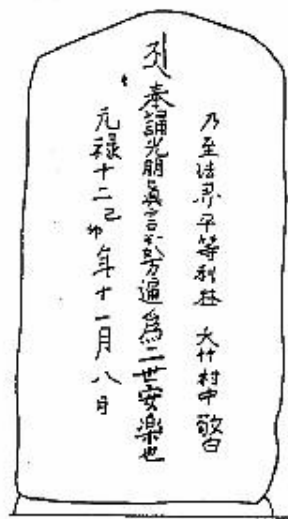 乃至法界平等利益 大竹村中 敬白
奉誦光明眞言万遍爲二世安楽也
元禄十二己卯年十一月八日